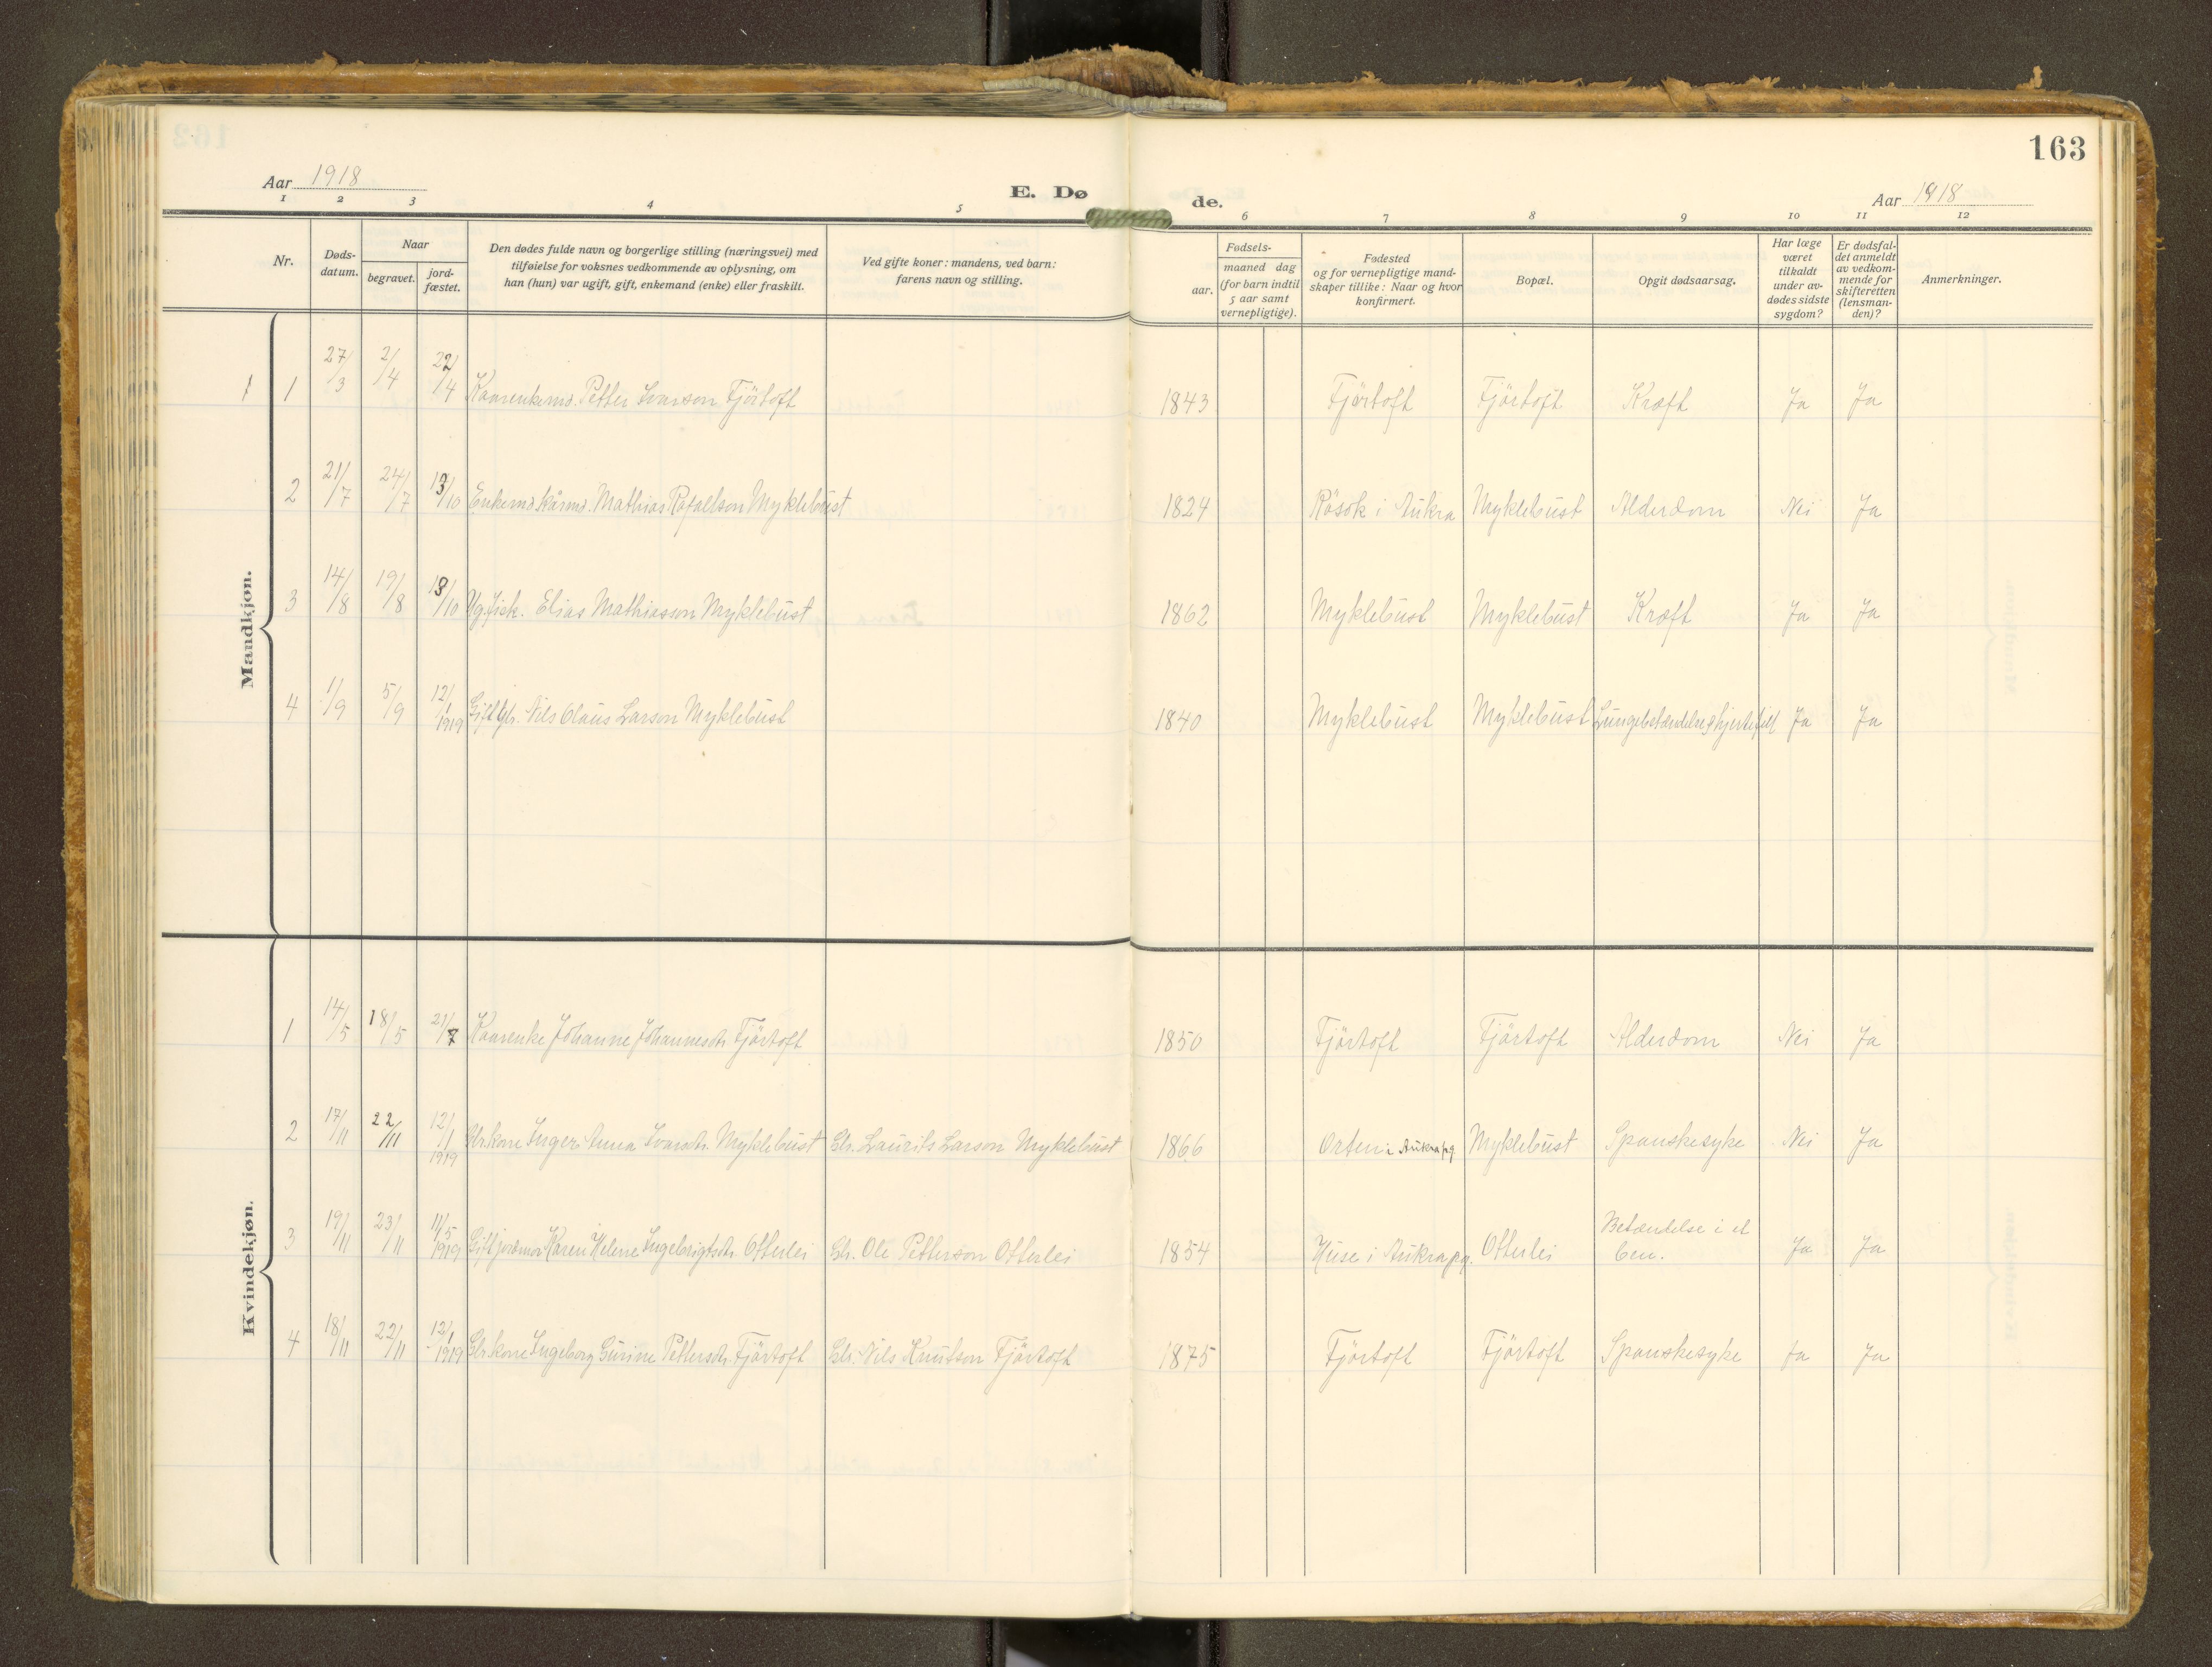 163
Aar 1918
E. Dø
de.
Aar 1918
1 2 3 4 5 6 7 8 9 10 11 12
Nr.
Døds-
datum.
Naar
begravet.
jord-
fæstet.
Den dødes fulde navn og borgerlige stilling (næringsvei) med
tilføielse for voksnes vedkommende av oplysning, om
han (hun) var ugift, gift, enkemand (enke) eller fraskilt.
Ved gifte koner: mandens, ved barn:
farens navn og stilling.
Fødsels-
aar.
maaned dag
(for barn indtil
5 aar samt
vernepligtige).
Fødested
og for vernepligtige mand-
skaper tillike: Naar og hvor
konfirmert.
Bopæl.
Opgit dødsaarsag.
Har læge
været
tilkaldt
under av-
dødes sidste
sygdom?
Er dødsfal-
det anmeldt
av vedkom-
mende for
skifteretten
(lensman-
den)?
Anmerkninger.
Mandkjøn.
1 1 27/3 2/4 22/4 Kaarenkemd. Petter Ivarson Fjörtoft 1843 Fjörtoft Fjörtoft Kræft Ja Ja
2 21/7 24/7 13/10 Enkemd kårmd. Mathias Rafaelson Myklebust 1824 Rösok i Aukra Myklebust Alderdom Nei Ja
3 14/8 19/8 13/10 Ug. fisk. Elias Mathiasson Myklebust 1862 Myklebust Myklebust Kræft Ja Ja
4 1/9 5/9 12/1 1919 Gift Gbr. Nils Olaus Larson Myklebust 1840 Myklebust Myklebust Lungebetændelse & hjertefeil Ja Ja
Kvindekjøn.
1 14/5 18/5 21/7 Kaarenke Johanne Johannesdtr. Fjörtoft 1850 Fjörtoft Fjörtoft Alderdom Nei Ja
2 17/11 22/11 12/1 1919 Gbrkone Inger Anna Ivarsdtr. Myklebust Gbr. Laurits Larson Myklebust 1866 Orten i Aukra pg. Myklebust Spanskesyke Nei Ja
3 19/11 23/11 11/5 1919 Gift jordmor Karen Helene Ingebrigtsdtr. Otterlei Gbr. Ole Petterson Otterlei 1854 Huse i Aukra pg. Otterlei Betændelse i et
ben. Ja Ja
4 18/11 22/11 12/1 1919 Gbrkone Ingeborg Gurine Pettersdtr. Fjörtoft Gbr. Nils Knutson Fjörtoft 1875 Fjörtoft Fjörtoft Spanskesyke Ja Ja